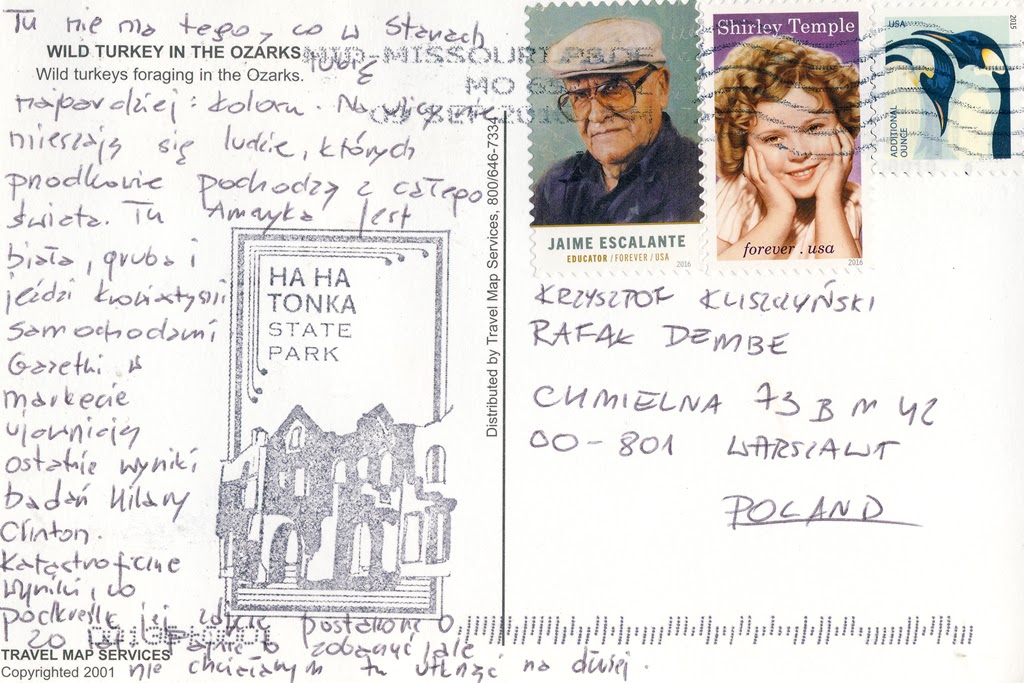 Tu nie ma tego, co w Stanach
WILD TURKEY IN THE OZARKS
lubię
Wild turkeys foraging in the Ozarks.
najbardziej: koloru. Na ulicy nie
mieszają się ludzie, których
przodkowie pochodzą z całego
świata. Tu Ameryka jest
biała, gruba i
jeździ
samochodami
Gazetki w
markecie
ujawniają
ostatnie wyniki
badań Hilary
Clinton.
Katastroficzne
wyniki, co
podkreśla jej zdjęcie postawione
20 zobaczyć ale
nie chciałbym tu utknąć na dłużej.
TRAVEL MAP SERVICES
Copyrighted 2001
HA HA
TONKA
STATE
PARK
Distributed by Travel Map Services, 800/646-7334
MID-MISSOURI P&DF
MO 65
JAIME ESCALANTE
EDUCATOR / FOREVER / USA
2016
Shirley Temple
forever . usa
2016
USA
2015
ADDITIONAL
OUNCE
KRZYSZTOF KLISZCZYŃSKI
RAFAŁ DEMBE
CHMIELNA 73 B M 42
00-801 WARSZAWA
POLAND